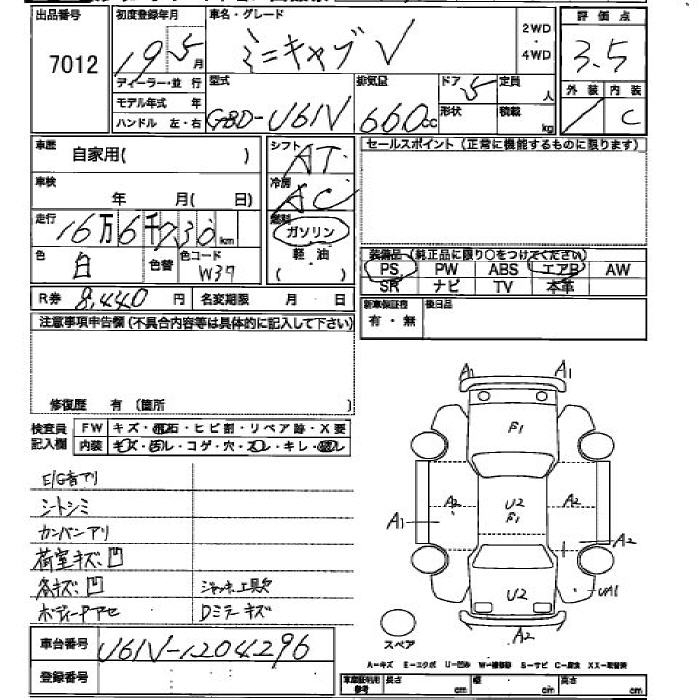 出品番号
7012
初度登録年月
19 5 月
ディーラー・並 行
モデル年式 年
ハンドル 左・右
車名・グレード
ミニキャブ V
2WD
・
4WD
型式
GBD-U61V
排気量
660cc
ドア
5
形状
定員
人
積載
kg
評価点
3.5
外装 内装
C
車歴
自家用( )
車検
年 月( 日)
走行
16万6千730km
色
白
色替
色コード
W37
R券 8,440 円
名変期限 月 日
シフト
AT
冷房
AC
燃料
ガソリン
軽・油
( )
セールスポイント (正常に機能するものに限ります)
装備品 (純正品に限り○をつけてください)
PS PW ABS エアB AW
SR ナビ TV 本革
新車保証書
有・無
後日品
注意事項申告欄 (不具合内容等は具体的に記入して下さい)
修復歴 有 (箇所 )
検査員
記入欄
FW キズ・飛石・ヒビ割・リペア跡・X要
内装 キズ・汚レ・コゲ・穴・スレ・キレ・
E/G音アリ
シートシミ
カンバンアリ
荷室キズ、凹
各キズ、凹
ボディー下アセ
ジャッキ、工具欠
Dミラーキズ
車台番号 U61V-1204296
登録番号
A1 A1
F1
A2 A2
U2
F1
A1
A2
U2
UA1
A2
スペア
A-キズ E-エクボ U-凹み W-補修跡 S-サビ C-腐食 XX-取替済
車庫証明用
参考
長さ cm 幅 cm 高さ cm